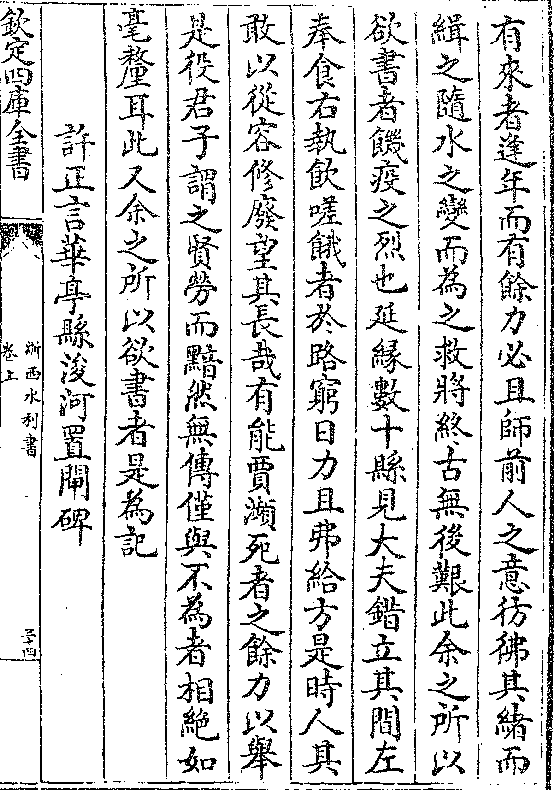 有來者逢年而有餘力必且師前人之意彷彿其緒而
緝之隨水之變而為之救將終古無後艱此余之所以
欲書者饑疫之烈也延緣數十縣見大夫錯立其間左
奉食右執飲嗟餓者於路窮日力且弗給方是時人其
敢以從容修廢望其長哉有能賈瀕死者之餘力以舉
是役君子謂之賢勞而黯然無傳僅與不為者相絶如
毫釐耳此又余之所以欲書者是為記
許正言華亭縣浚河置閘碑
欽定四庫全書
浙西水利書
卷上
三十四